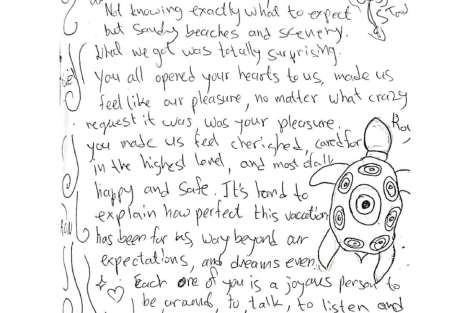 Not knowing exactly what to expect
but Sandy beaches and scenery.
What we got was totally surprising.
You all opened your hearts to us, made us
feel like our pleasure, no matter what crazy
request it was, was your pleasure.
you made us feel cherished, cared for
in the highest level, and most
happy and safe. It's hard to
explain how perfect this vacation
has been for us, way beyond our
expectations, and dreams even.
Each one of you is a joyous person to
be around, to talk, to listen and